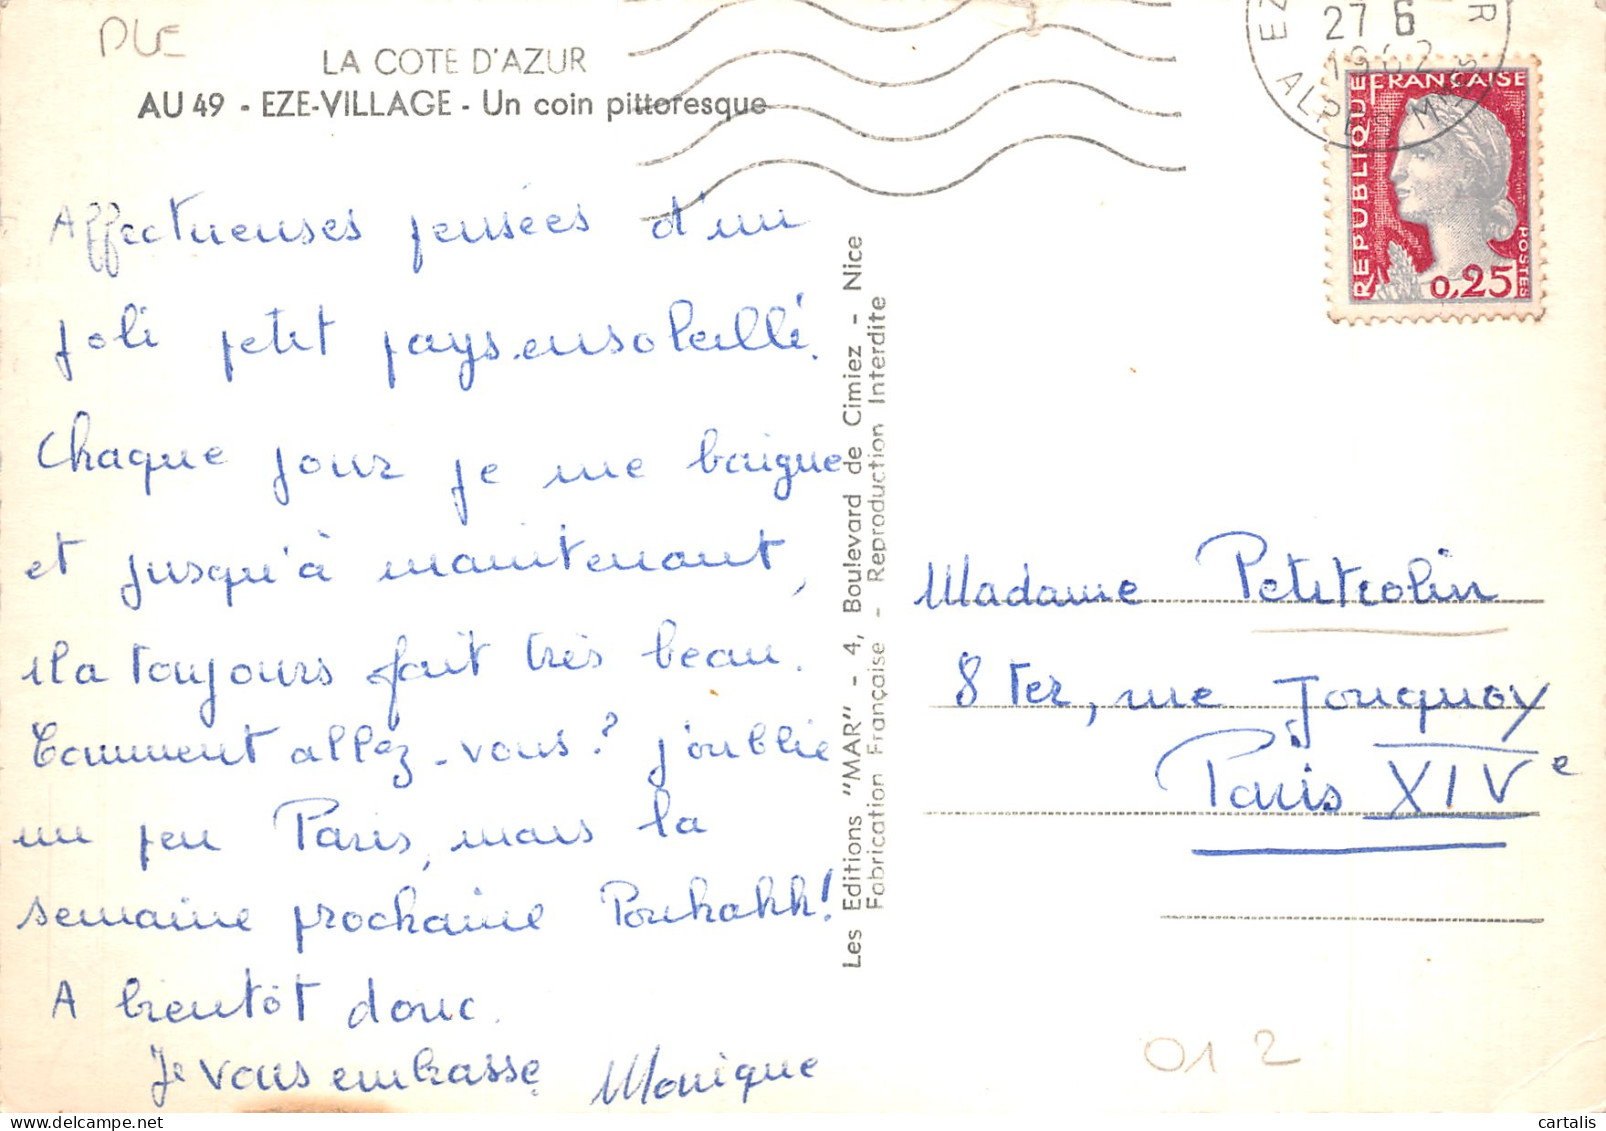 DLE
LA COTE D'AZUR
AU 49 - EZE-VILLAGE - Un coin pittoresque
Affectueuses pensées d'un
joli petit pays ensoleillé.
Chaque jour je me baigne
et jusqu'à maintenant,
il a toujours fait très beau.
Comment allez-vous? j'oublie
un peu Paris, mais la
semaine prochaine
A bientôt donc.
Je vous embrasse Monique
Les Editions "MAR" - 4, Boulevard de Cimiez - Nice
Fabrication Française - Reproduction Interdite
27 6
1962
ALPES MMES
REPUBLIQUE FRANÇAISE
POSTES
0,25
Madame Petitcolin
8 ter, rue Jonquoy
Paris XIVe
012
cartalis